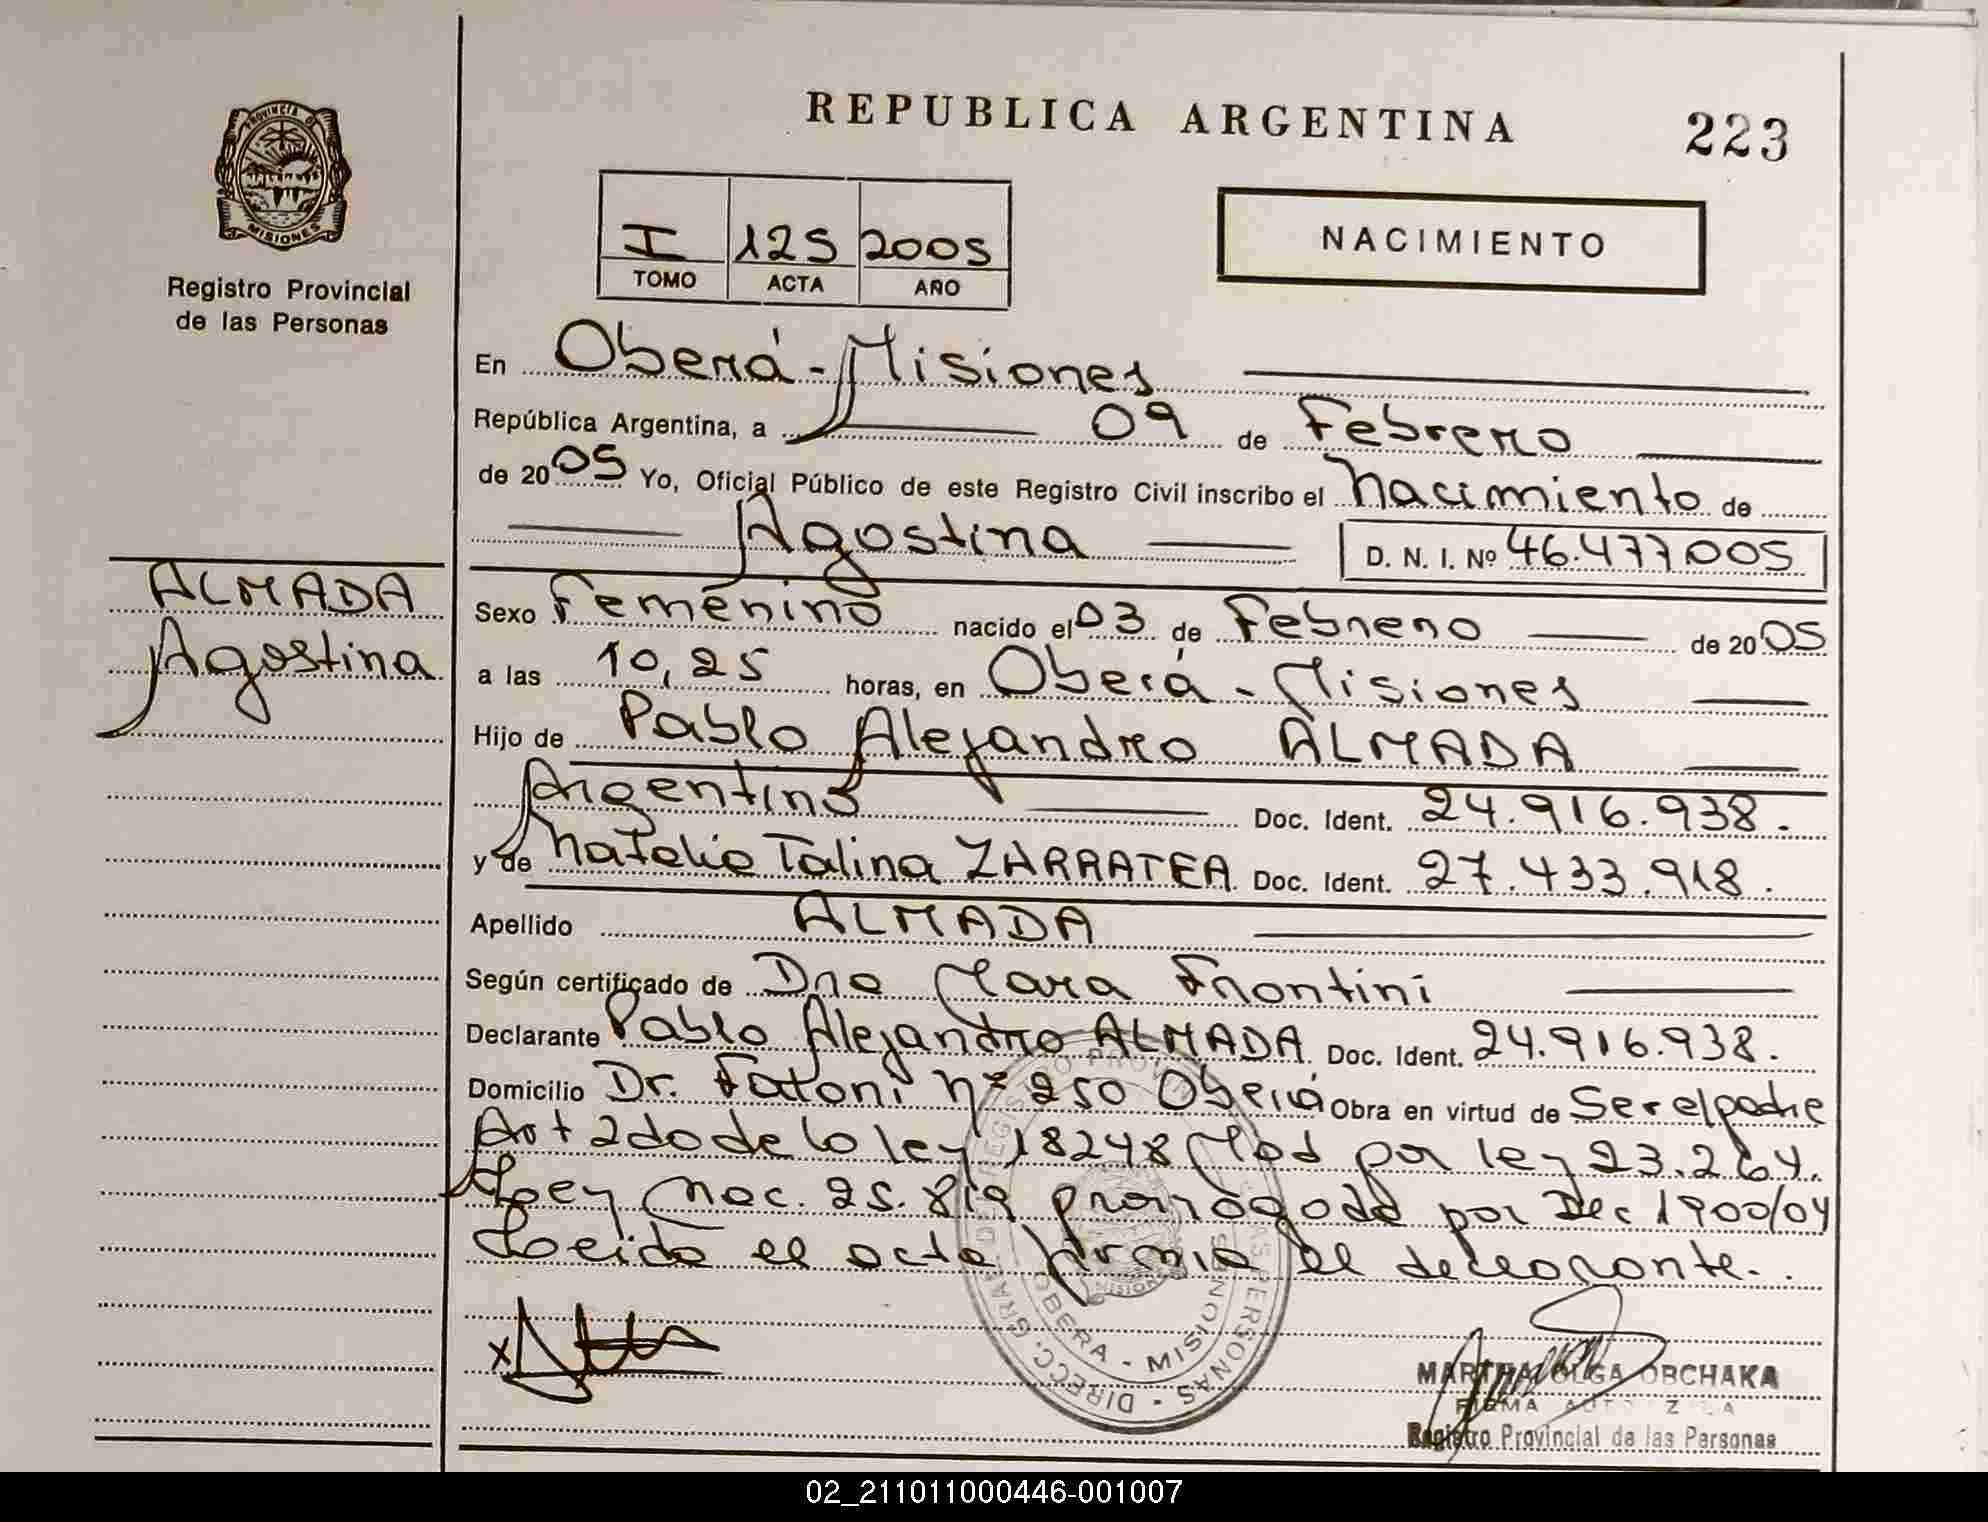 REPUBLICA ARGENTINA
223
PROVINCIA DE
MISIONES
Registro Provincial
de las Personas
I 125 2005
TOMO ACTA AÑO
NACIMIENTO
En Oberá - Misiones
República Argentina, a 09 de Febrero
de 2005 Yo, Oficial Público de este Registro Civil inscribo el Nacimiento de
Agostina D. N. I. Nº 46.477.005
ALMADA
Agostina
Sexo Femenino nacido el 03 de Febrero de 2005
a las 10,25 horas, en Oberá - Misiones
Hijo de Pablo Alejandro ALMADA
Argentino Doc. Ident. 24.916.938.
y de Natalia Talina ZARRATEA Doc. Ident. 27.433.918.
Apellido ALMADA
Según certificado de Dra Mara Frontini
Declarante Pablo Alejandro ALMADA Doc. Ident. 24.916.938.
Domicilio Dr. Fatoni nº 250 Oberá Obra en virtud de Ser el padre
Art 2do de la ley 18248 Mod por ley 23.264.
Ley Nac. 25.819 prorrogada por Dec 1900/04
Leida el acta firma el declarante.
DIRECC. GRAL. DE REGISTRO PROVINCIAL DE LAS PERSONAS
OBERA - MISIONES
MARTHA OLGA OBCHAKA
FIRMA AUTORIZADA
Registro Provincial de las Personas
02_211011000446-001007